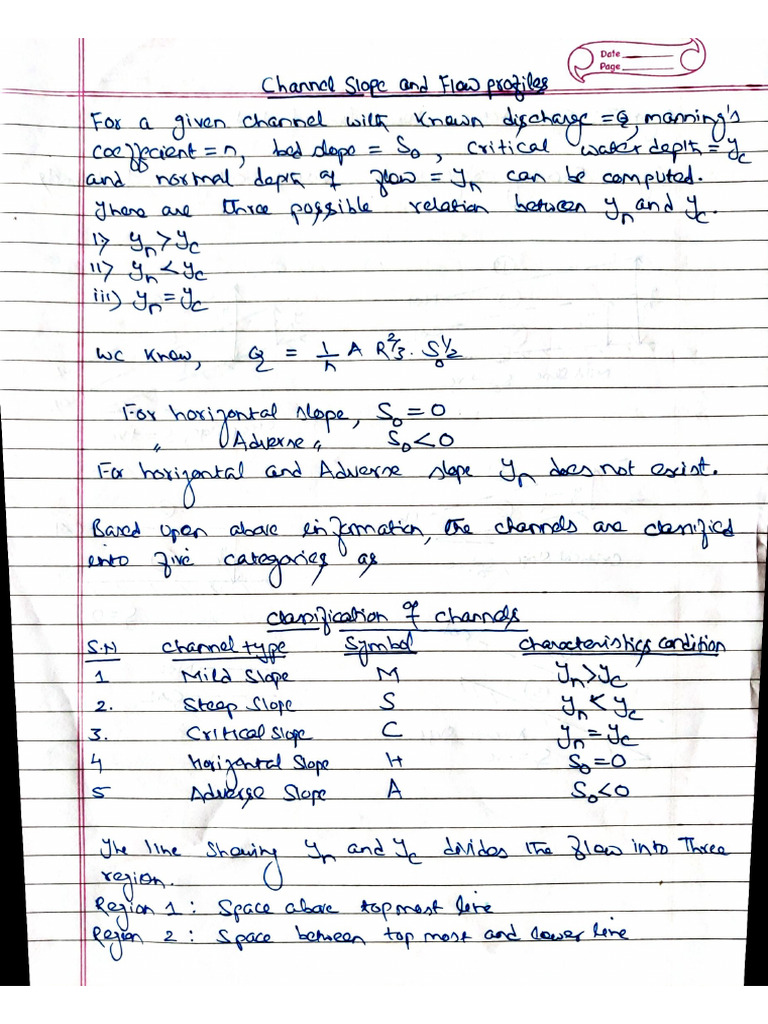 Date
Page
Channel Slope and Flow profiles
For a given channel with known discharge = Q, manning's
coeffecient = n, bed slope = S₀, critical water depth = y_c
and normal depth of flow = y_n can be computed.
There are three possible relation between y_n and y_c.
i) y_n > y_c
ii) y_n < y_c
iii) y_n = y_c
We know, Q = 1/n A R^2/3 . S₀^1/2
For horizontal slope, S₀ = 0
〃 Adverse 〃 S₀ < 0
For horizontal and Adverse slope y_n does not exist.
Based upon above information, the channels are classified
into five categories as
Classification of channels
S.N Channel type Symbol Characteristics condition
1 Mild Slope M y_n > y_c
2. Steep Slope S y_n < y_c
3. Critical Slope C y_n = y_c
4 Horizontal Slope H S₀ = 0
5 Adverse Slope A S₀ < 0
The line showing y_n and y_c divides the flow into three
region.
Region 1 : Space above top most line
Region 2 : Space between top most and lower line